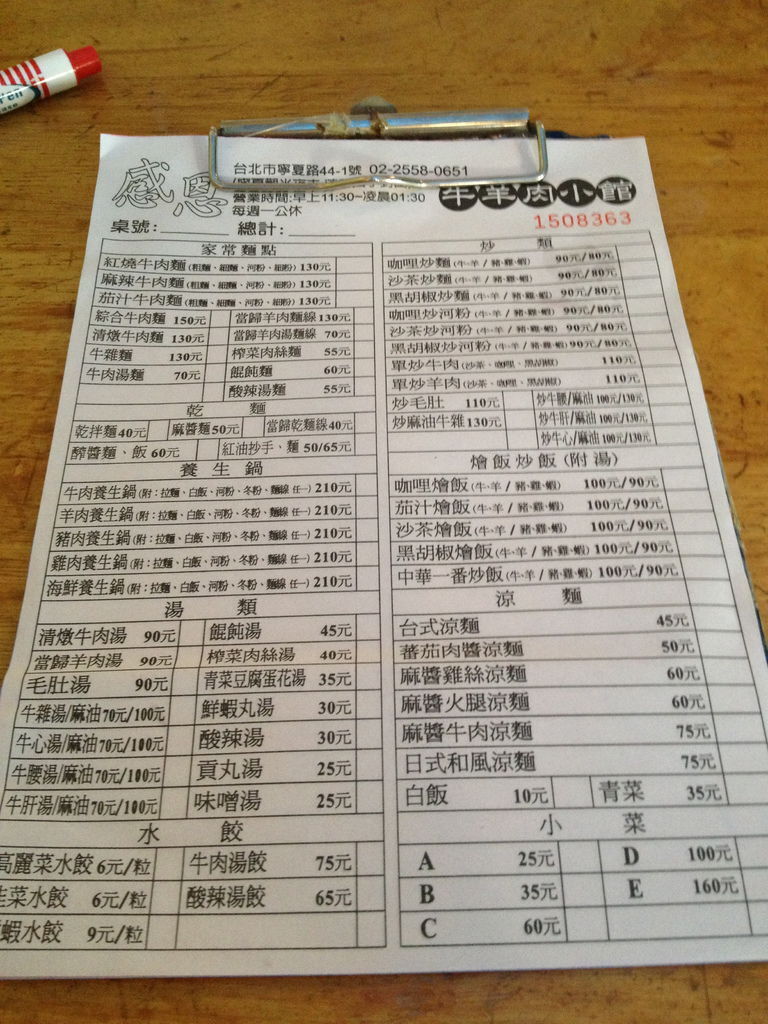 感恩
台北市寧夏路44-1號 02-2558-0651
營業時間:早上11:30~凌晨01:30
每週一公休
牛羊肉小館
1508363
桌號: 總計:
家常麵點
紅燒牛肉麵(粗麵、細麵、河粉、細粉) 130元
麻辣牛肉麵(粗麵、細麵、河粉、細粉) 130元
茄汁牛肉麵(粗麵、細麵、河粉、細粉) 130元
綜合牛肉麵 150元 當歸羊肉麵線 130元
清燉牛肉麵 130元 當歸羊肉湯麵線 70元
牛雜麵 130元 榨菜肉絲麵 55元
牛肉湯麵 70元 餛飩麵 60元
酸辣湯麵 55元
乾麵
乾拌麵40元 麻醬麵50元 當歸乾麵線40元
醡醬麵、飯 60元 紅油抄手、麵 50/65元
養生鍋
牛肉養生鍋(附:拉麵、白飯、河粉、冬粉、麵線 任一) 210元
羊肉養生鍋(附:拉麵、白飯、河粉、冬粉、麵線 任一) 210元
豬肉養生鍋(附:拉麵、白飯、河粉、冬粉、麵線 任一) 210元
雞肉養生鍋(附:拉麵、白飯、河粉、冬粉、麵線 任一) 210元
海鮮養生鍋(附:拉麵、白飯、河粉、冬粉、麵線 任一) 210元
湯類
清燉牛肉湯 90元 餛飩湯 45元
當歸羊肉湯 90元 榨菜肉絲湯 40元
毛肚湯 90元 青菜豆腐蛋花湯 35元
牛雜湯/麻油70元/100元 鮮蝦丸湯 30元
牛心湯/麻油70元/100元 酸辣湯 30元
牛腰湯/麻油70元/100元 貢丸湯 25元
牛肝湯/麻油70元/100元 味噌湯 25元
水餃
高麗菜水餃 6元/粒 牛肉湯餃 75元
菜水餃 6元/粒 酸辣湯餃 65元
蝦水餃 9元/粒
炒類
咖哩炒麵(牛·羊 / 豬·雞·蝦) 90元/80元
沙茶炒麵(牛·羊 / 豬·雞·蝦) 90元/80元
黑胡椒炒麵(牛·羊 / 豬·雞·蝦) 90元/80元
咖哩炒河粉(牛·羊 / 豬·雞·蝦) 90元/80元
沙茶炒河粉(牛·羊 / 豬·雞·蝦) 90元/80元
黑胡椒炒河粉(牛·羊 / 豬·雞·蝦)90元/80元
單炒牛肉(沙茶、咖哩、黑胡椒) 110元
單炒羊肉(沙茶、咖哩、黑胡椒) 110元
炒毛肚 110元 炒牛腰/麻油 100元/130元
炒麻油牛雜130元 炒牛肝/麻油 100元/130元
炒牛心/麻油 100元/130元
燴飯炒飯(附湯)
咖哩燴飯(牛·羊 / 豬·雞·蝦) 100元/90元
茄汁燴飯(牛·羊 / 豬·雞·蝦) 100元/90元
沙茶燴飯(牛·羊 / 豬·雞·蝦) 100元/90元
黑胡椒燴飯(牛·羊 / 豬·雞·蝦) 100元/90元
中華一番炒飯(牛·羊 / 豬·雞·蝦) 100元/90元
涼麵
台式涼麵 45元
蕃茄肉醬涼麵 50元
麻醬雞絲涼麵 60元
麻醬火腿涼麵 60元
麻醬牛肉涼麵 75元
日式和風涼麵 75元
白飯 10元 青菜 35元
小菜
A 25元 D 100元
B 35元 E 160元
C 60元